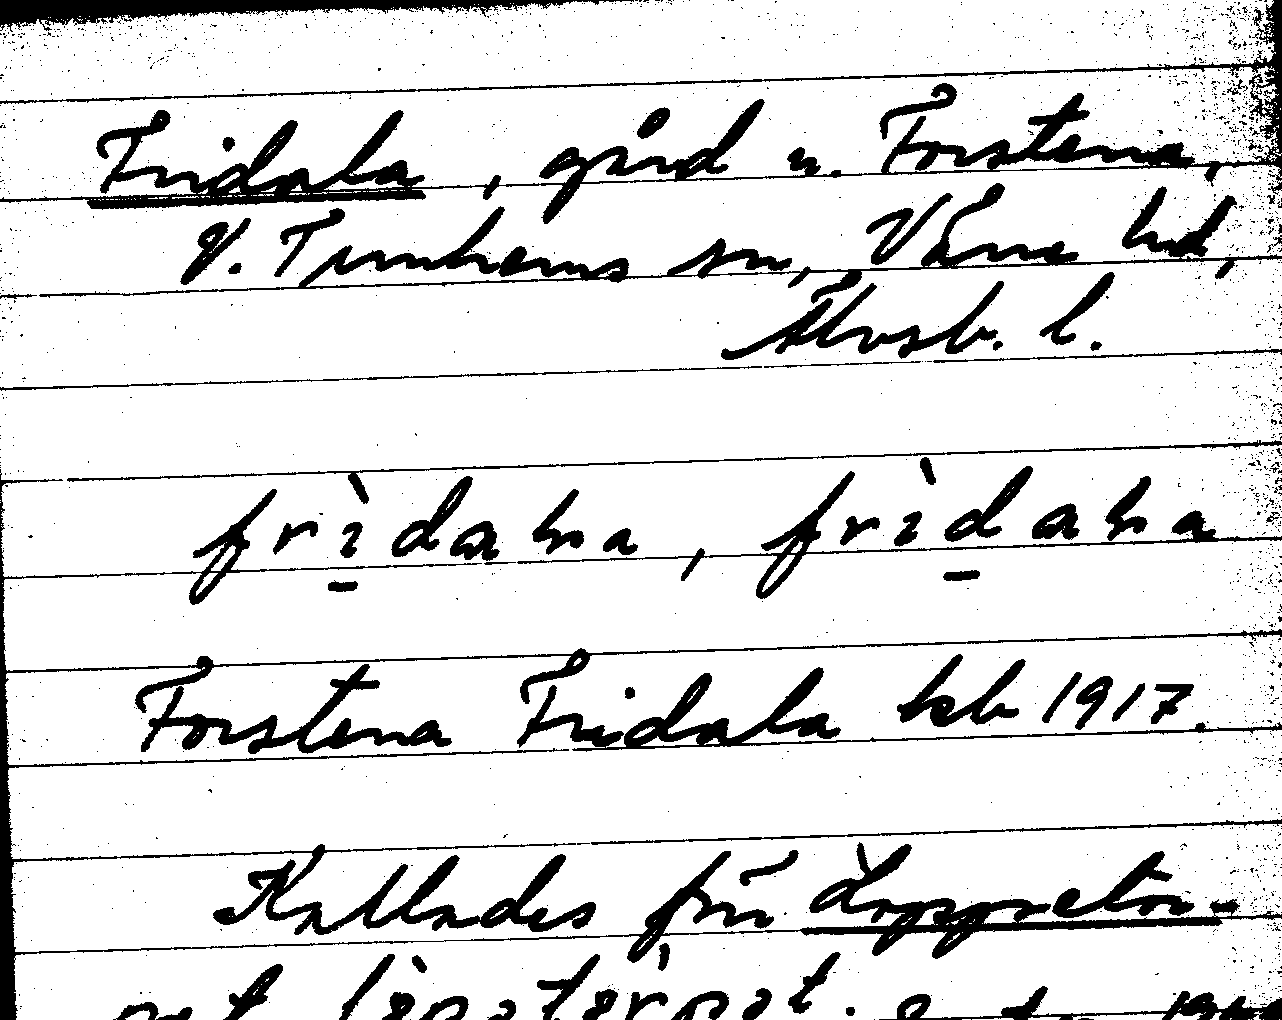 Fridala, gård u. Forstena,
V. Tunhems sn, Väne hd,
Älvsb. l.
frìdaƚa, frìdaƚa
Forstena Fridala kb 1917.
Kallades för